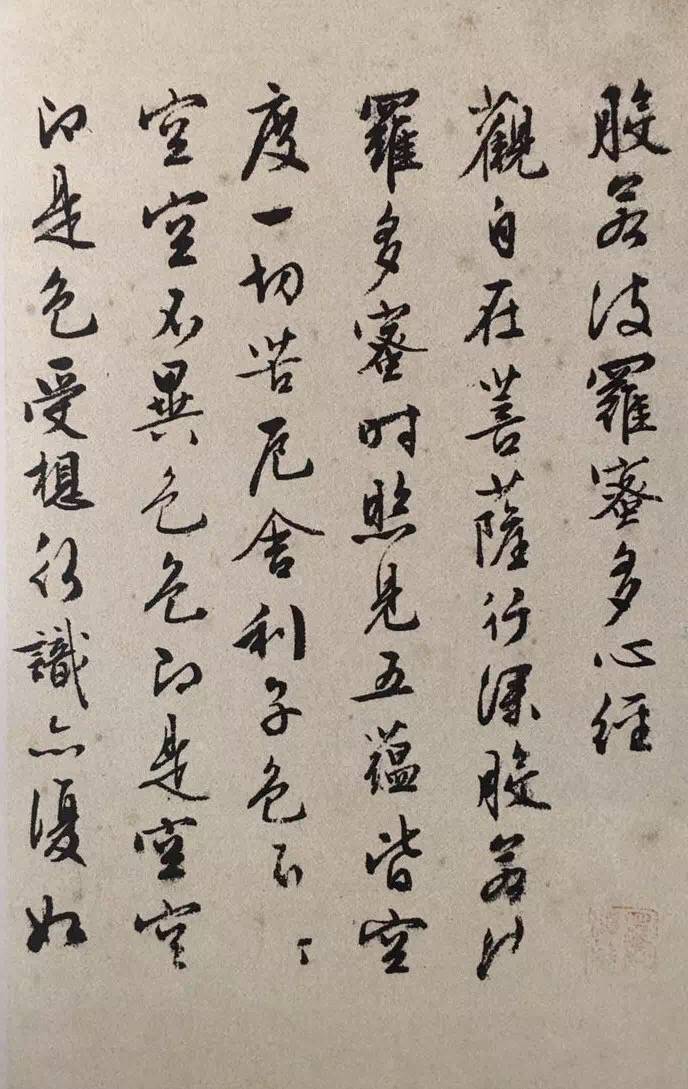 般若波羅蜜多心經
觀自在菩薩行深般若
羅多蜜時照見五蘊皆空
度一切苦厄舍利子色不
空空不異色色即是空空
即是色受想行識亦復如